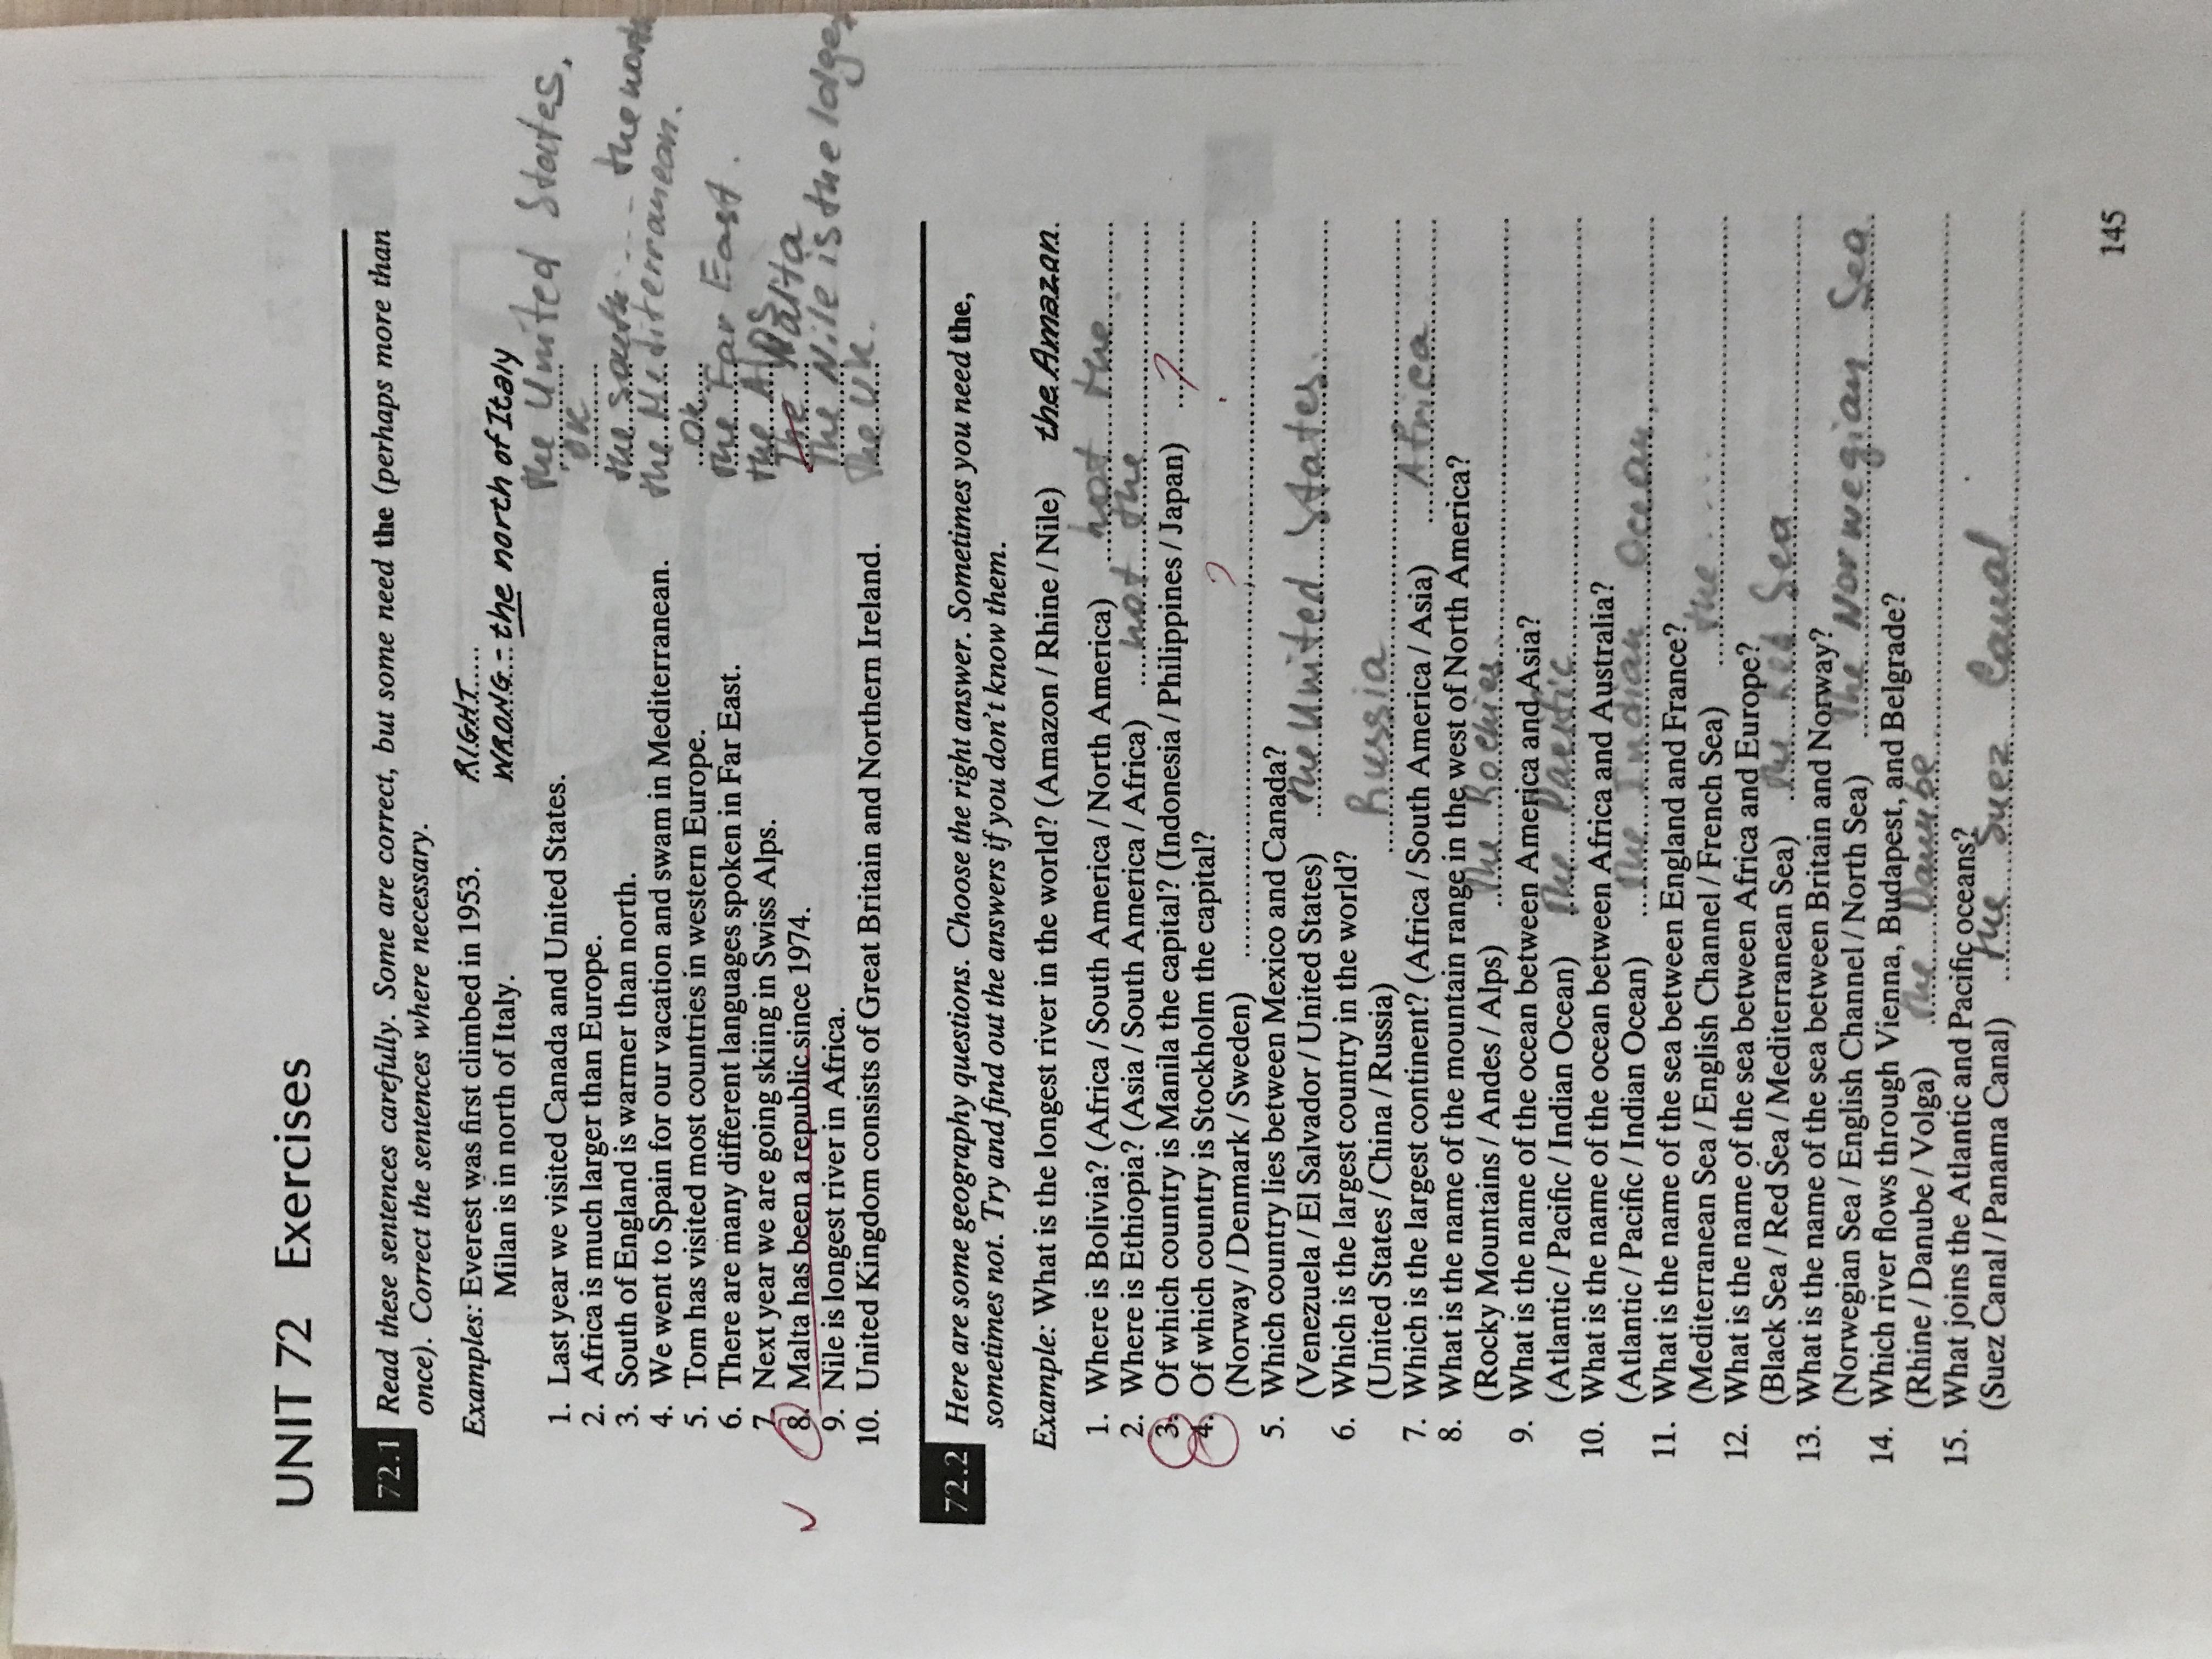 UNIT 72 Exercises
72.1 Read these sentences carefully. Some are correct, but some need the (perhaps more than
once). Correct the sentences where necessary.
Examples: Everest was first climbed in 1953. RIGHT
Milan is in north of Italy. WRONG - the north of Italy
1. Last year we visited Canada and United States. the United States.
2. Africa is much larger than Europe. OK
3. South of England is warmer than north. the south --- the north
4. We went to Spain for our vacation and swam in Mediterranean. the Mediterranean.
5. Tom has visited most countries in western Europe. OK
6. There are many different languages spoken in Far East. the Far East.
7. Next year we are going skiing in Swiss Alps. the Alps
8. Malta has been a republic since 1974. The Malta
9. Nile is longest river in Africa. The Nile is the
10. United Kingdom consists of Great Britain and Northern Ireland. The UK.
72.2 Here are some geography questions. Choose the right answer. Sometimes you need the,
sometimes not. Try and find out the answers if you don't know them.
Example: What is the longest river in the world? (Amazon / Rhine / Nile) the Amazon
1. Where is Bolivia? (Africa / South America / North America) not the
2. Where is Ethiopia? (Asia / South America / Africa) not the
3. Of which country is Manila the capital? (Indonesia / Philippines / Japan) ?
4. Of which country is Stockholm the capital?
(Norway / Denmark / Sweden) ?
5. Which country lies between Mexico and Canada?
(Venezuela / El Salvador / United States) the United States.
6. Which is the largest country in the world?
(United States / China / Russia) Russia
7. Which is the largest continent? (Africa / South America / Asia) Africa
8. What is the name of the mountain range in the west of North America?
(Rocky Mountains / Andes / Alps) The Rockies
9. What is the name of the ocean between America and Asia?
(Atlantic / Pacific / Indian Ocean) The
10. What is the name of the ocean between Africa and Australia?
(Atlantic / Pacific / Indian Ocean) The Indian Ocean.
11. What is the name of the sea between England and France?
(Mediterranean Sea / English Channel / French Sea) the ...
12. What is the name of the sea between Africa and Europe?
(Black Sea / Red Sea / Mediterranean Sea) The Red Sea
13. What is the name of the sea between Britain and Norway?
(Norwegian Sea / English Channel / North Sea) The Norwegian Sea
14. Which river flows through Vienna, Budapest, and Belgrade?
(Rhine / Danube / Volga) The Danube
15. What joins the Atlantic and Pacific oceans?
(Suez Canal / Panama Canal) the Suez Canal
145